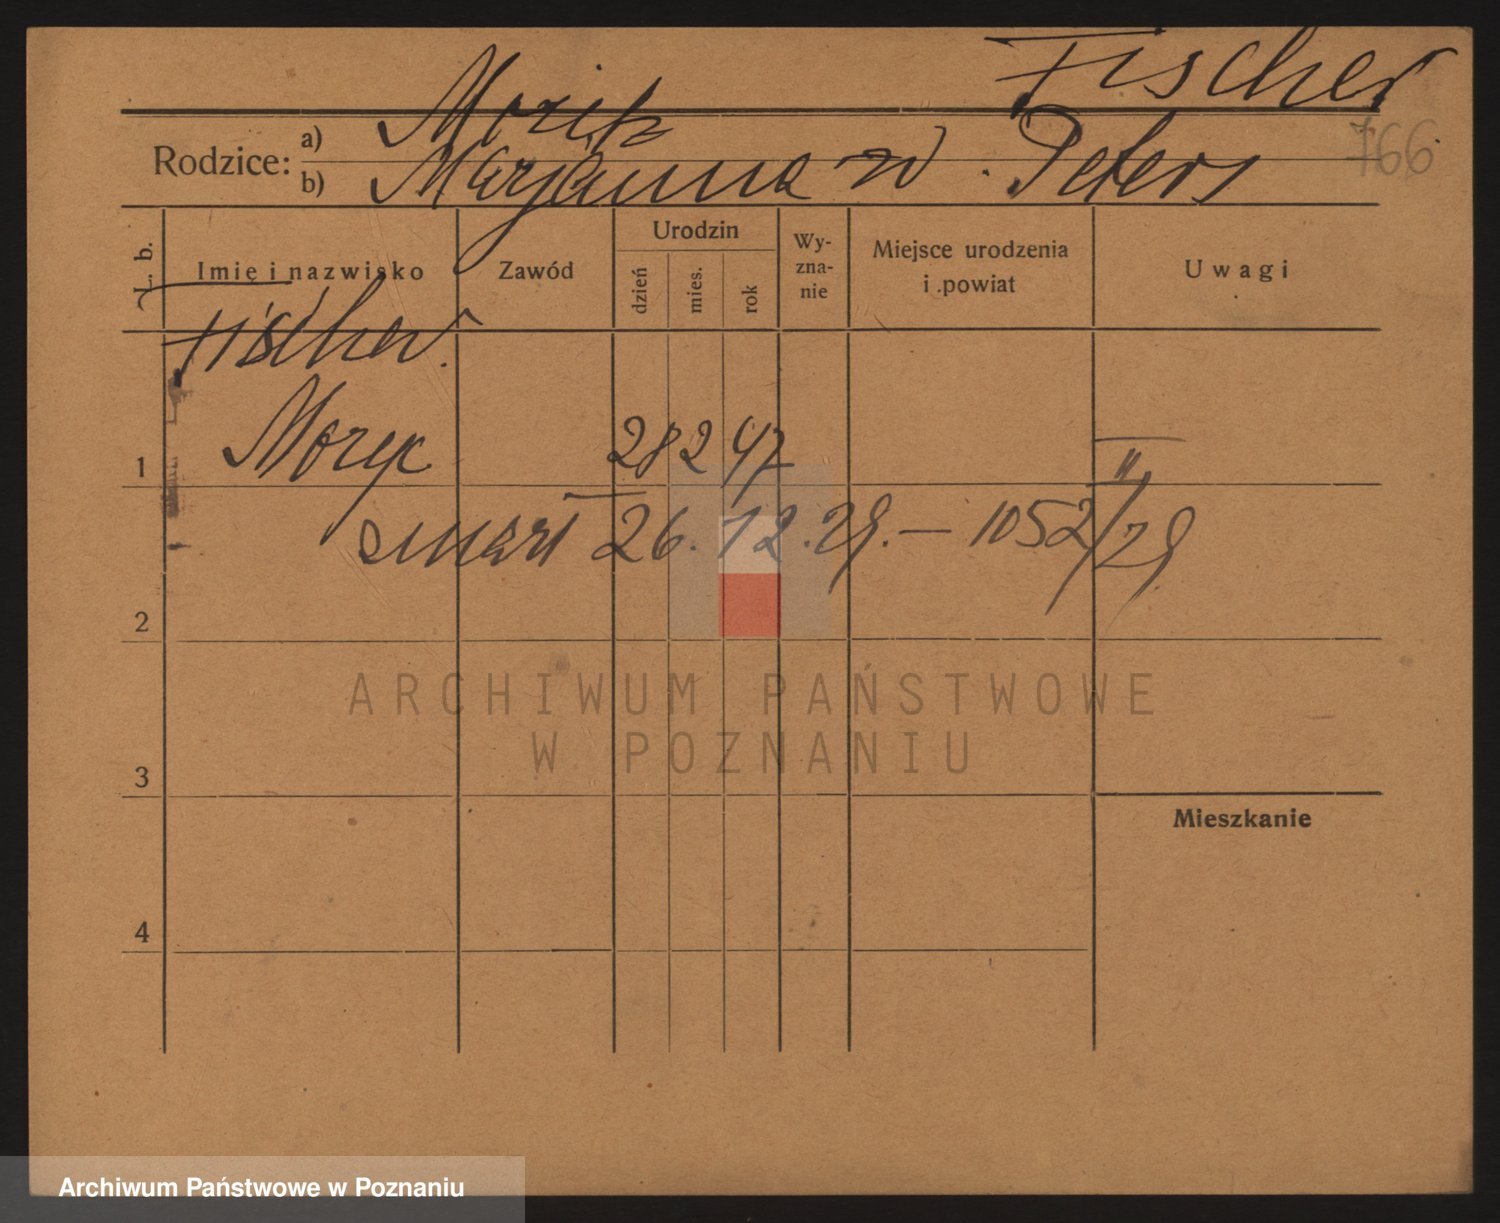 Fischer
766
Rodzice:
a) Moritz
b) Maryanna w. Peters
L. b.
Imię i nazwisko
Zawód
Urodzin
dzień
mies.
rok
Wy-
zna-
nie
Miejsce urodzenia
i powiat
Uwagi
Fischer
1
28 2 47
II
26.12.29. — 1052/29
2
3
Mieszkanie
4
ARCHIWUM PAŃSTWOWE
W POZNANIU
Archiwum Państwowe w Poznaniu